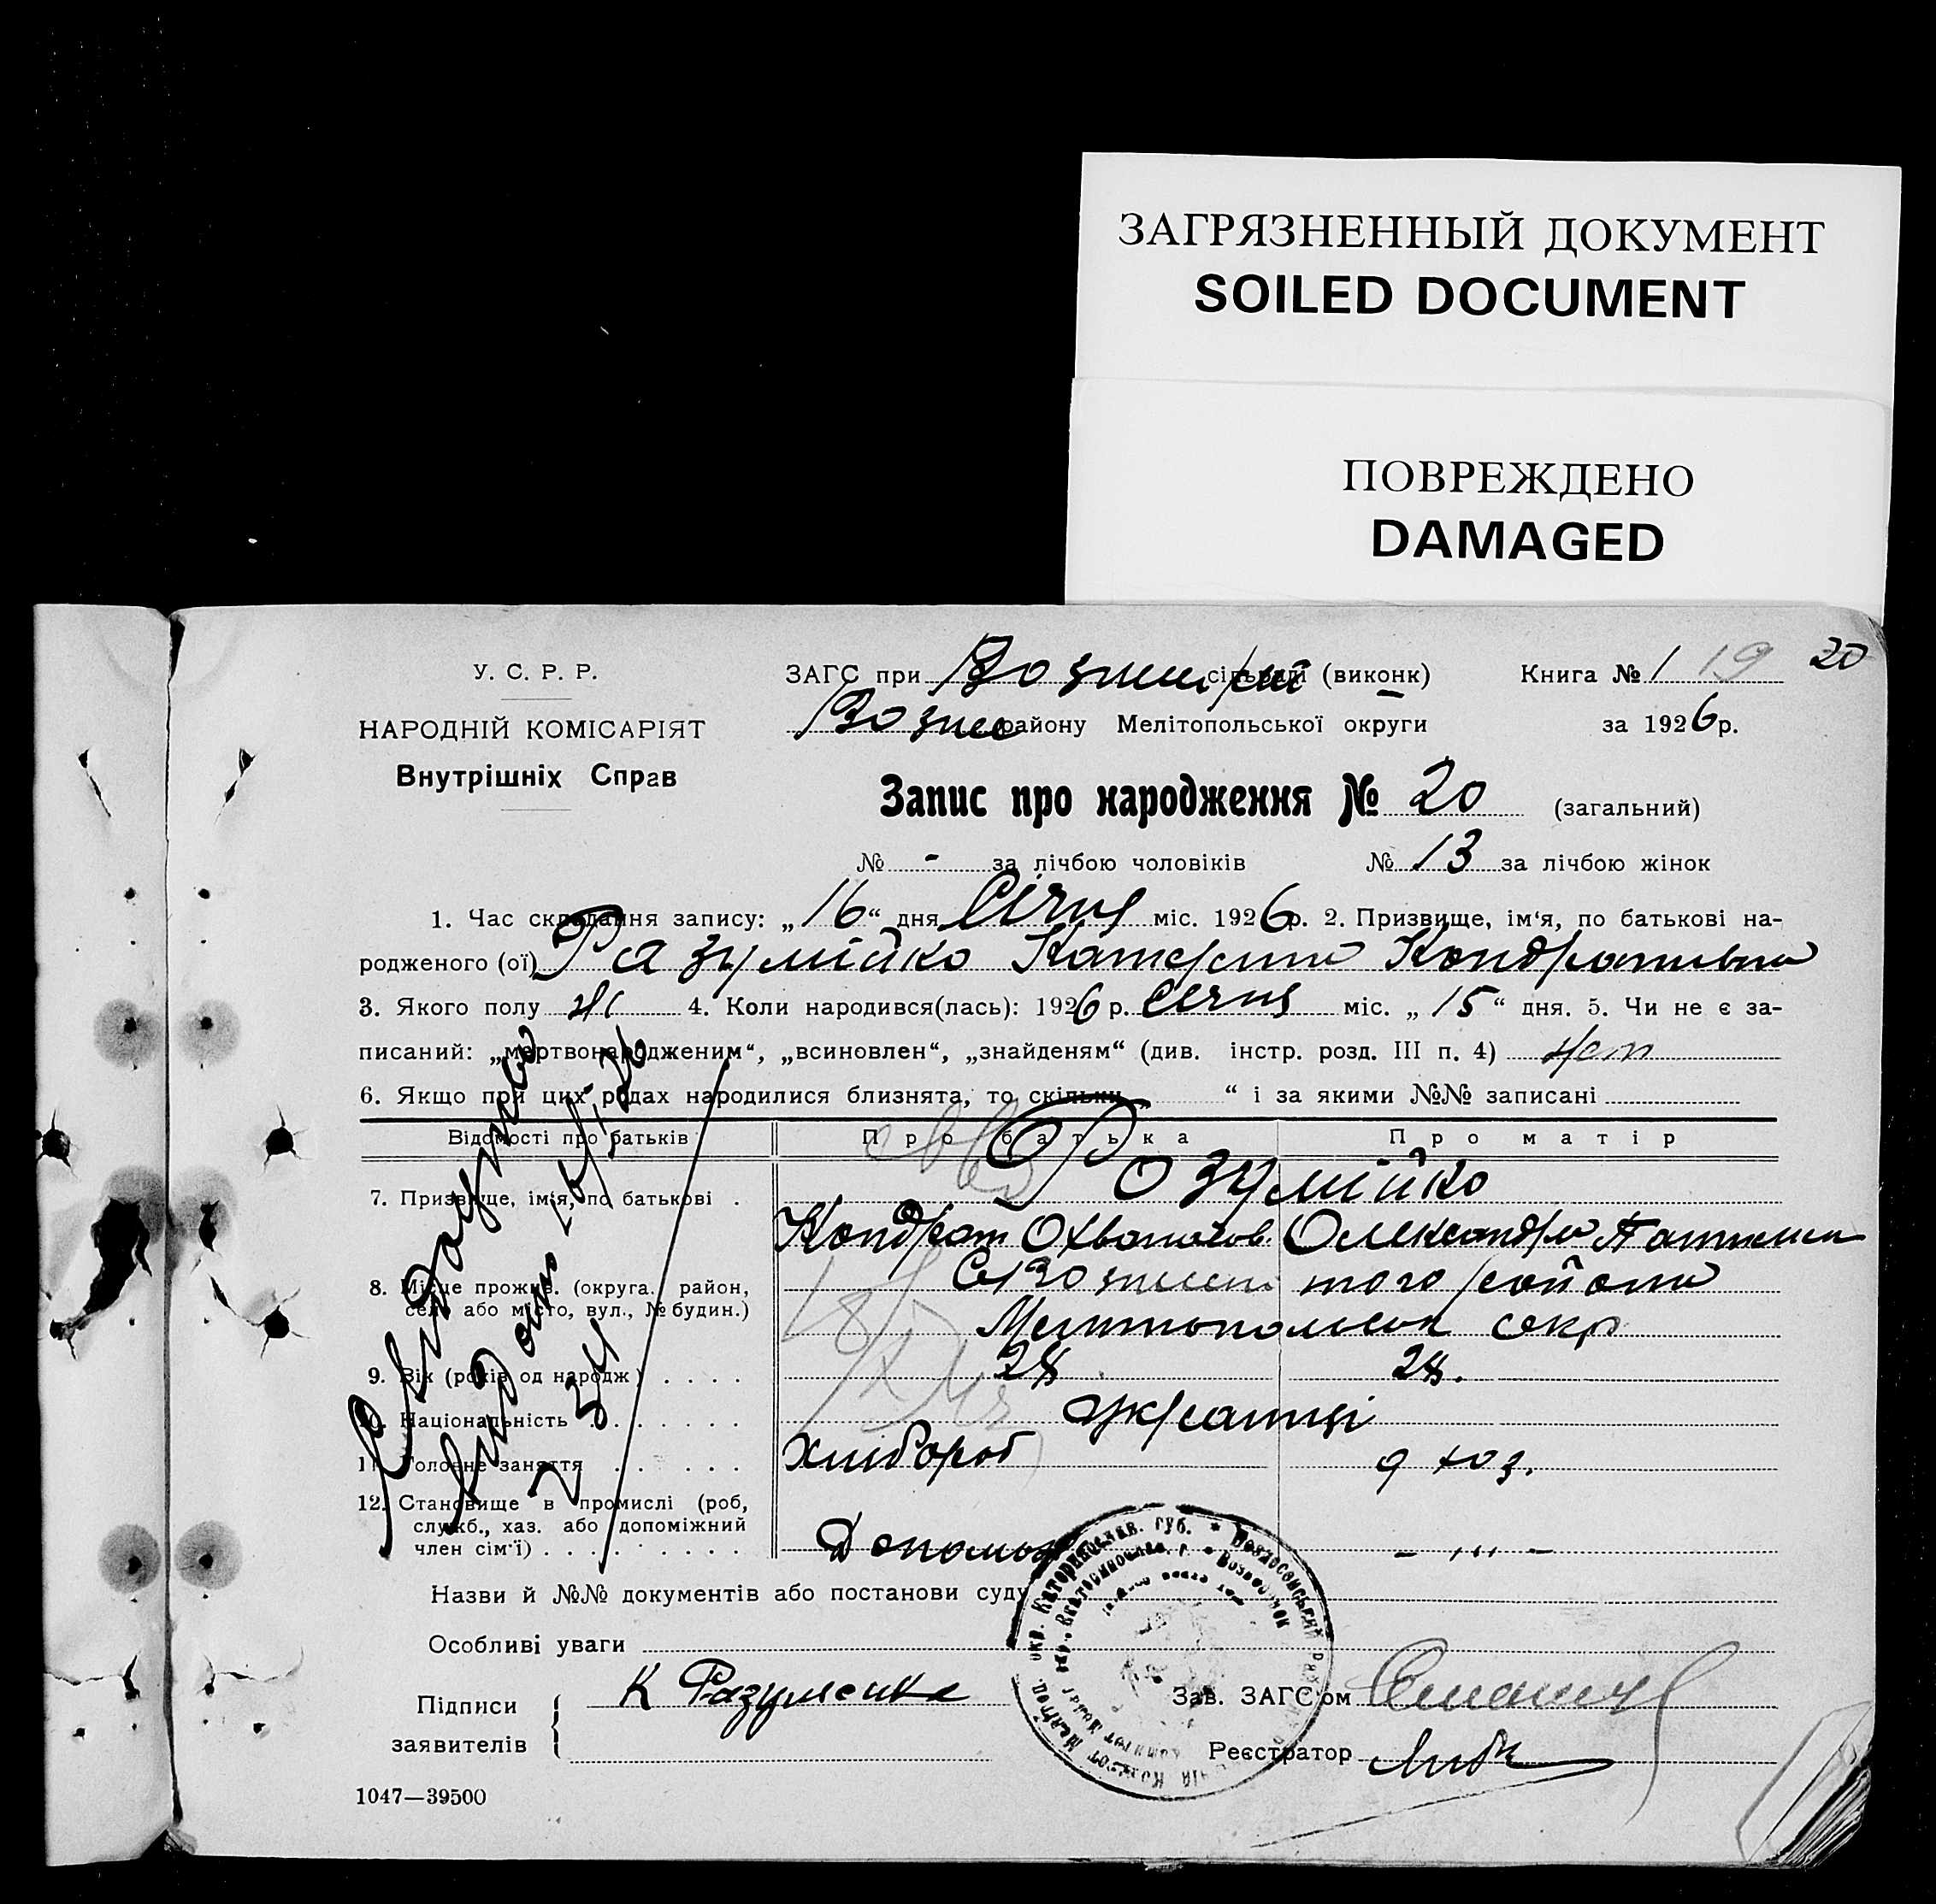 ЗАГРЯЗНЕННЫЙ ДОКУМЕНТ
SOILED DOCUMENT
ПОВРЕЖДЕНО
DAMAGED
У. С. Р. Р.
НАРОДНІЙ КОМІСАРІЯТ
Внутрішніх Справ
ЗАГС при сільраді (виконк) Книга № 1 19 20
Возне району Мелітопольської округи за 1926 р.
Запис про народження № 20 (загальний)
№ - за лічбою чоловіків № 13 за лічбою жінок
1. Час складання запису: „16“ дня Січня міс. 1926 р. 2. Призвище, ім‘я, по батькові на-
родженого (ої) Разумійко Катерина Кондратівна
3. Якого полу ж 4. Коли народився(лась): 1926 р. Січня міс. „15“ дня. 5. Чи не є за-
писаний: „мертвонародженим“, „всиновлен“, „знайденям“ (див. інстр. розд. III п. 4) нет
6. Якщо при цих родах народилися близнята, то скільки “ і за якими №№ записані
Відомості про батьків Про батька Про матір
7. Призвище, імія, по батькові . Розумійко
Кондрат Олександра
8. Місце прожив. (округа, район, того району
село або місто, вул., № будин.)
9. Вік (років од народж) . . . . 28 28.
10. Національність . . . . . . . українці
11. Головне заняття . . . . . . Хлібороб
12. Становище в промислі (роб,
служб., хаз. або допоміжний
член сім‘ї) . . . . . . . . . - ,,, -
Назви й №№ документів або постанови суду
Особливі уваги
Підписи К Разуменко Зав. ЗАГС‘ом
заявителів Реєстратор
1047—39500